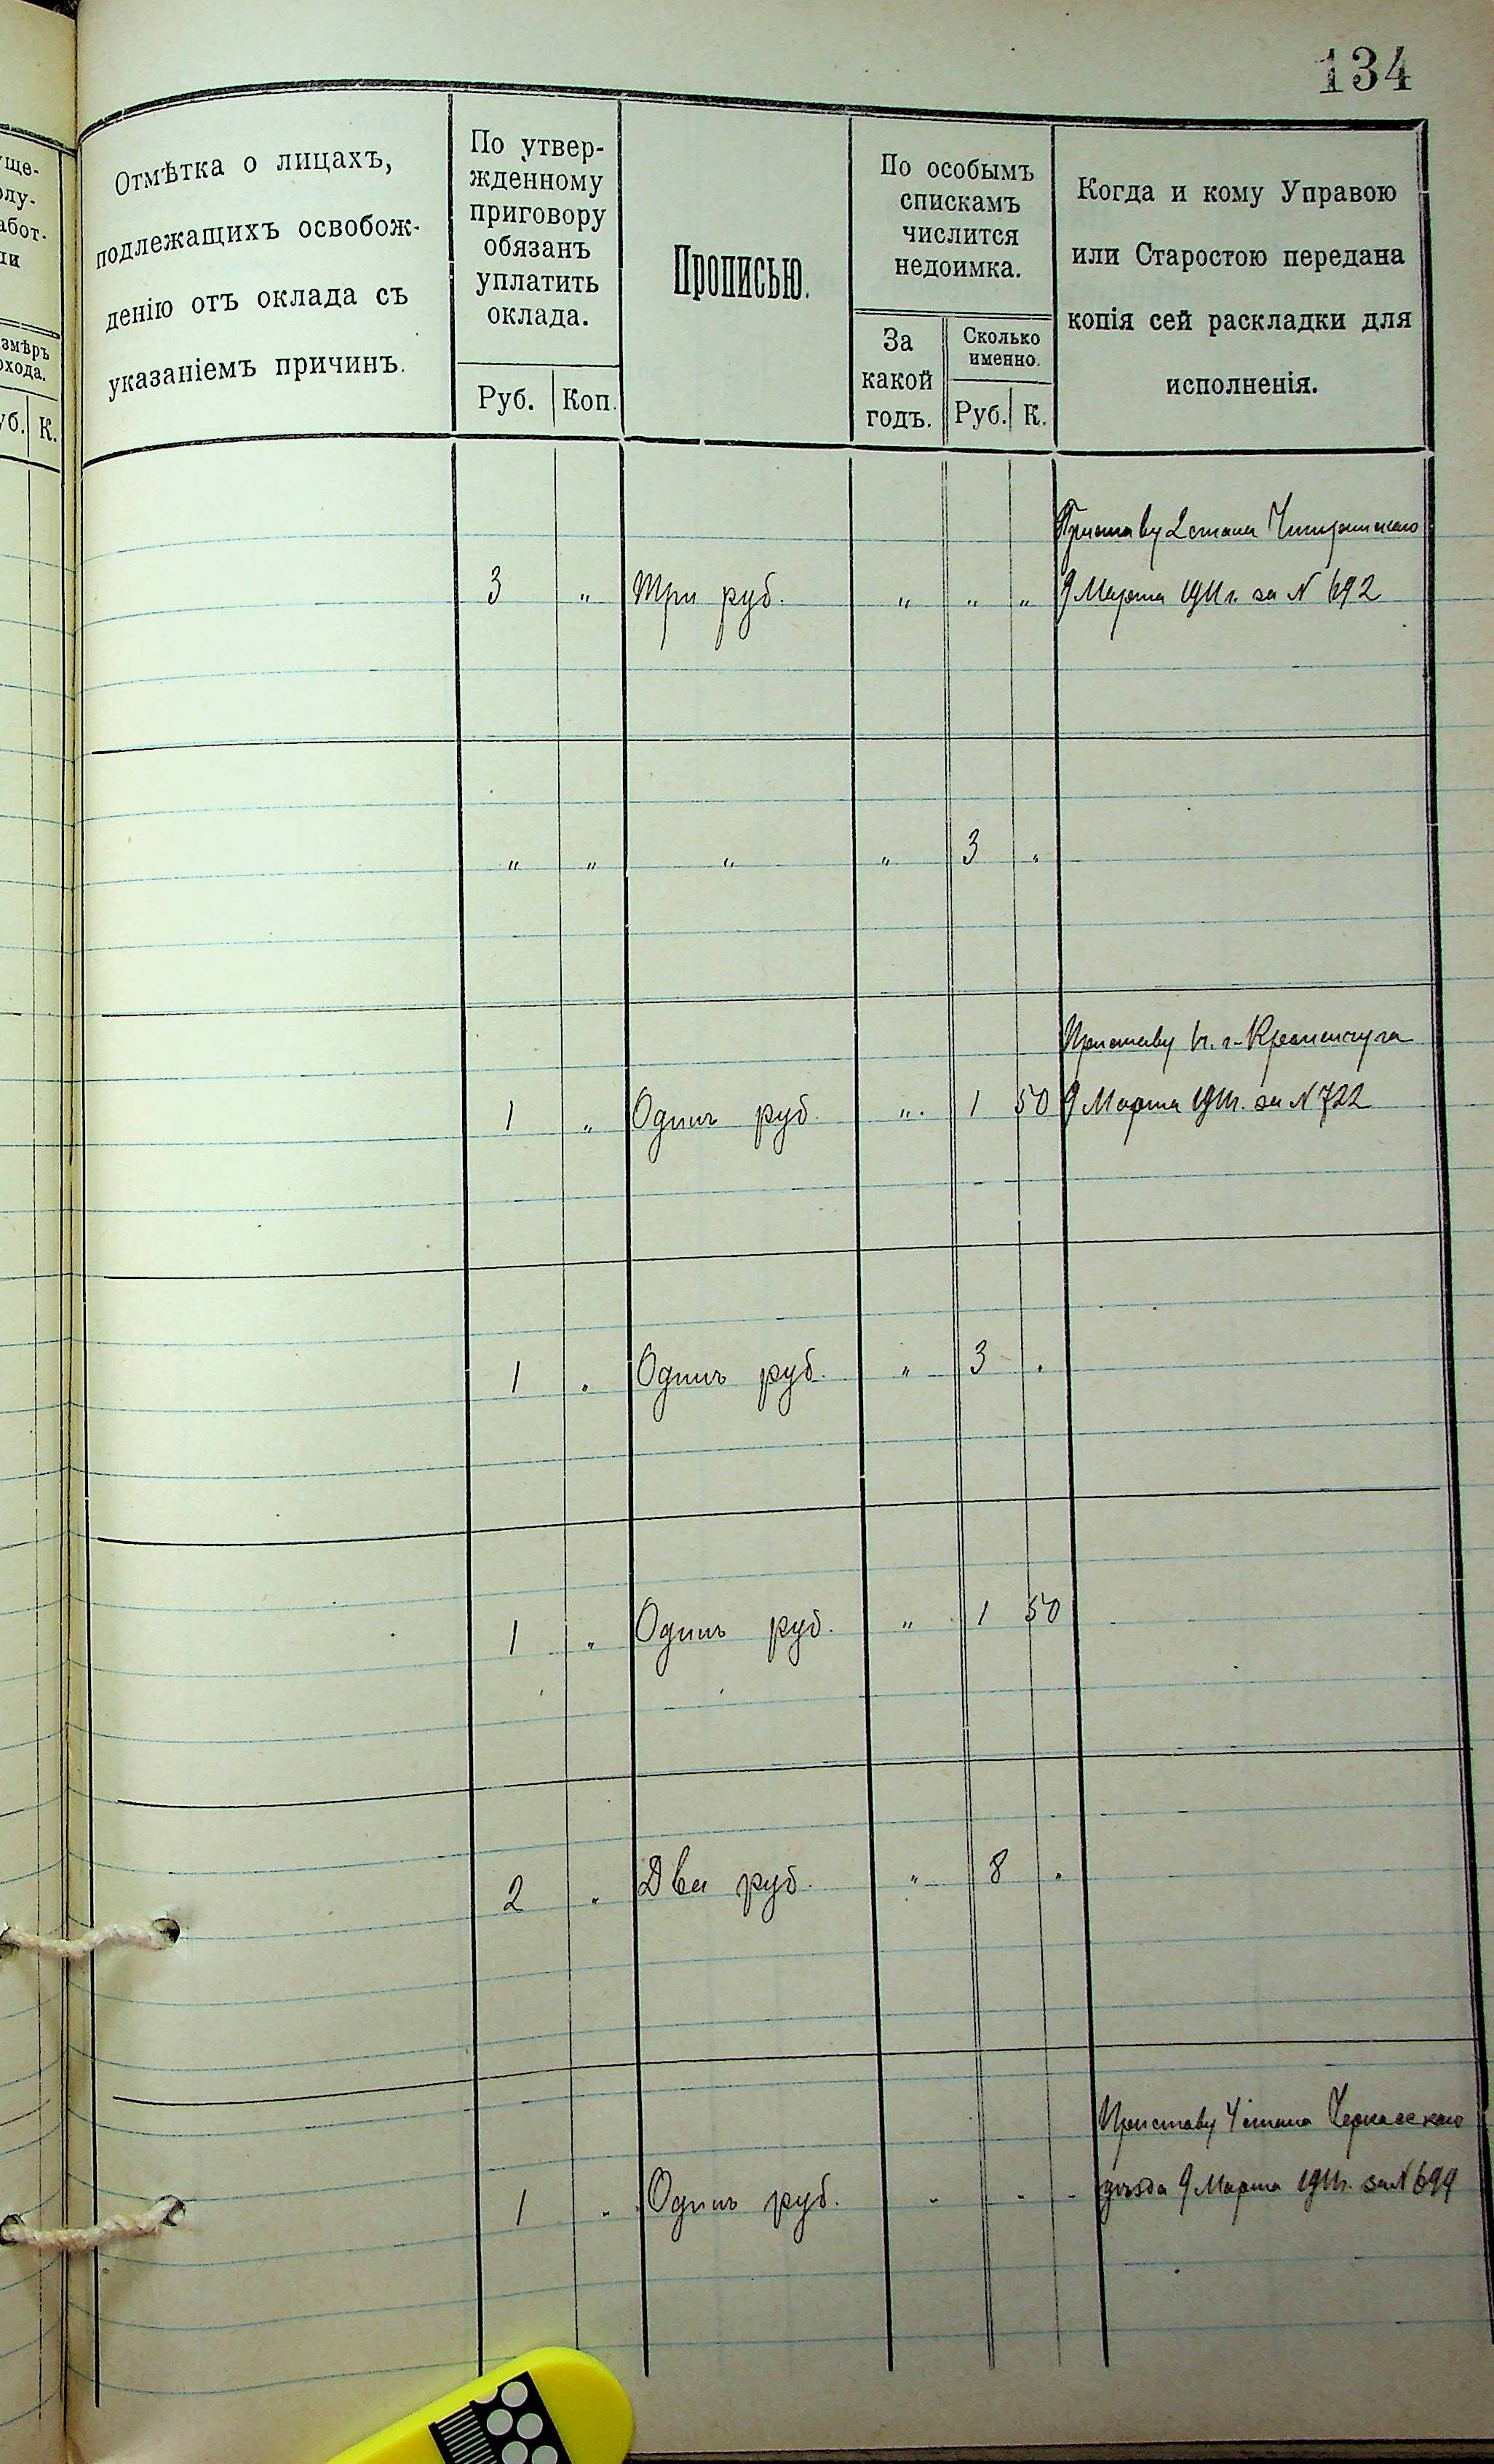 134
уще-
олу-
абот-
ли
азмѣръ
охода.
уб. К.
Отмѣтка о лицахъ,
подлежащихъ освобож-
денію отъ оклада съ
указаніемъ причинъ.
По утвер-
жденному
приговору
обязанъ
уплатить
оклада.
Руб. Коп.
Прописью.
По особымъ
спискамъ
числится
недоимка.
За
какой
годъ.
Сколько
именно.
Руб. К.
Когда и кому Управою
или Старостою передана
копія сей раскладки для
исполненія.
Приставу 2 стана Чигиринскаго
3 " Три руб. " " " 9 Марта 1911 г. за N 692
" " " " 3 "
Приставу г. Кременчуга
1 " Одинъ руб. " 1 50 9 Марта 1911 г. за N 722
1 " Одинъ руб. " 3 "
1 " Одинъ руб. " 1 50
2 " Два руб. " 8 "
Приставу 4 стана Черкасскаго
1 " Одинъ руб. " " " уѣзда 9 Марта 1911 г. за N 694